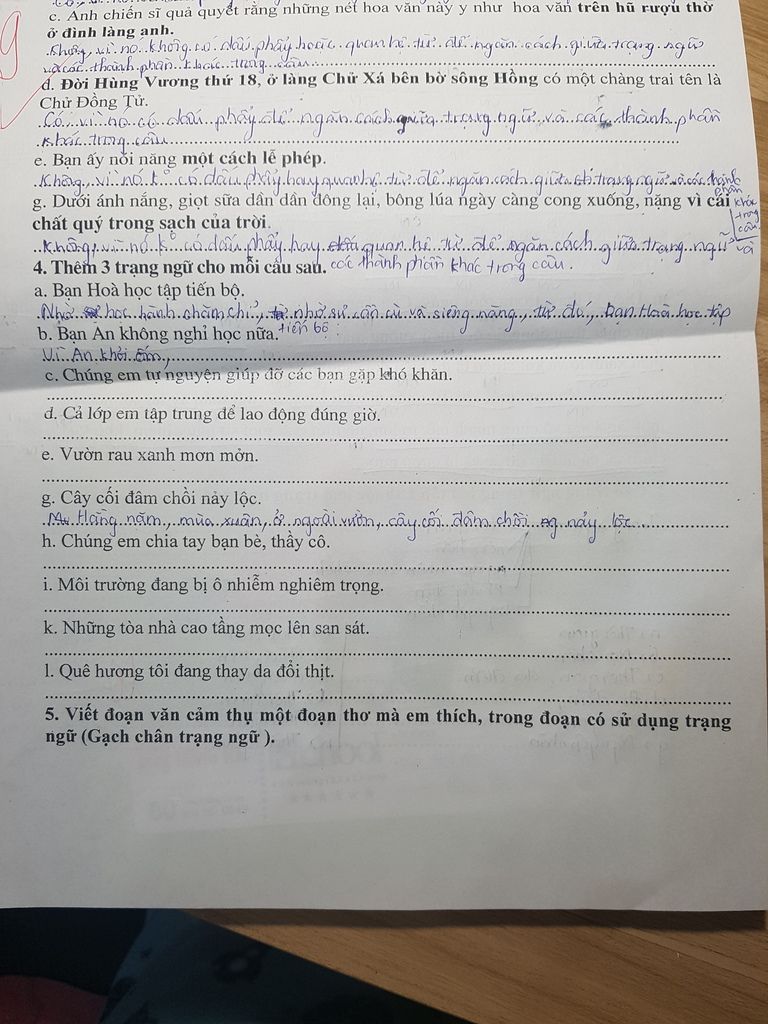 c. Anh chiến sĩ quả quyết rằng những nét hoa văn này y như hoa văn trên hũ rượu thờ
ở đình làng anh.
Không, vì nó không có dấu phẩy hoặc quan hệ từ để ngăn cách giữa trạng ngữ
và các thành phần khác trong câu.
d. Đời Hùng Vương thứ 18, ở làng Chử Xá bên bờ sông Hồng có một chàng trai tên là
Chử Đồng Tử.
Có vì nó có dấu phẩy để ngăn cách giữa trạng ngữ và các thành phần
khác trong câu
e. Bạn ấy nói năng một cách lễ phép.
Không, vì nó k° có dấu phẩy hay quan hệ từ để ngăn cách giữa trạng ngữ và các thành
phần
khác
trong
câu
g. Dưới ánh nắng, giọt sữa dần dần đông lại, bông lúa ngày càng cong xuống, nặng vì cái
chất quý trong sạch của trời.
Không, vì nó k° có dấu phẩy hay quan hệ từ để ngăn cách giữa trạng ngữ và
các thành phần khác trong câu.
4. Thêm 3 trạng ngữ cho mỗi câu sau.
a. Bạn Hoà học tập tiến bộ.
Nhờ học hành chăm chỉ, nhờ sự cần cù và siêng năng, từ đó, bạn Hoà học tập
tiến bộ.
b. Bạn An không nghỉ học nữa.
Vì An khỏi ốm,
c. Chúng em tự nguyện giúp đỡ các bạn gặp khó khăn.
d. Cả lớp em tập trung để lao động đúng giờ.
e. Vườn rau xanh mơn mởn.
g. Cây cối đâm chồi nảy lộc.
Hằng năm, mùa xuân, ở ngoài vườn, cây cối đâm chồi nảy lộc
h. Chúng em chia tay bạn bè, thầy cô.
i. Môi trường đang bị ô nhiễm nghiêm trọng.
k. Những tòa nhà cao tầng mọc lên san sát.
l. Quê hương tôi đang thay da đổi thịt.
5. Viết đoạn văn cảm thụ một đoạn thơ mà em thích, trong đoạn có sử dụng trạng
ngữ (Gạch chân trạng ngữ ).